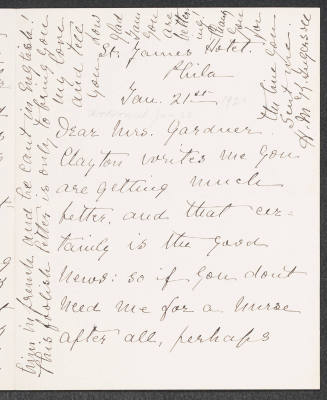 St. James Hotel
Phila
Jan. 21st
Dear Mrs. Gardner
Clayton writes me you
are getting much
better, and that cer=
tainly is the good
news: so if you don't
need me for a nurse
after all, perhaps
him in French and he can't in English!
This foolish letter is only to bring you
my love
and tell
you how
glad
I am
you
are
better
Thank
you
for
the line you
sent me.